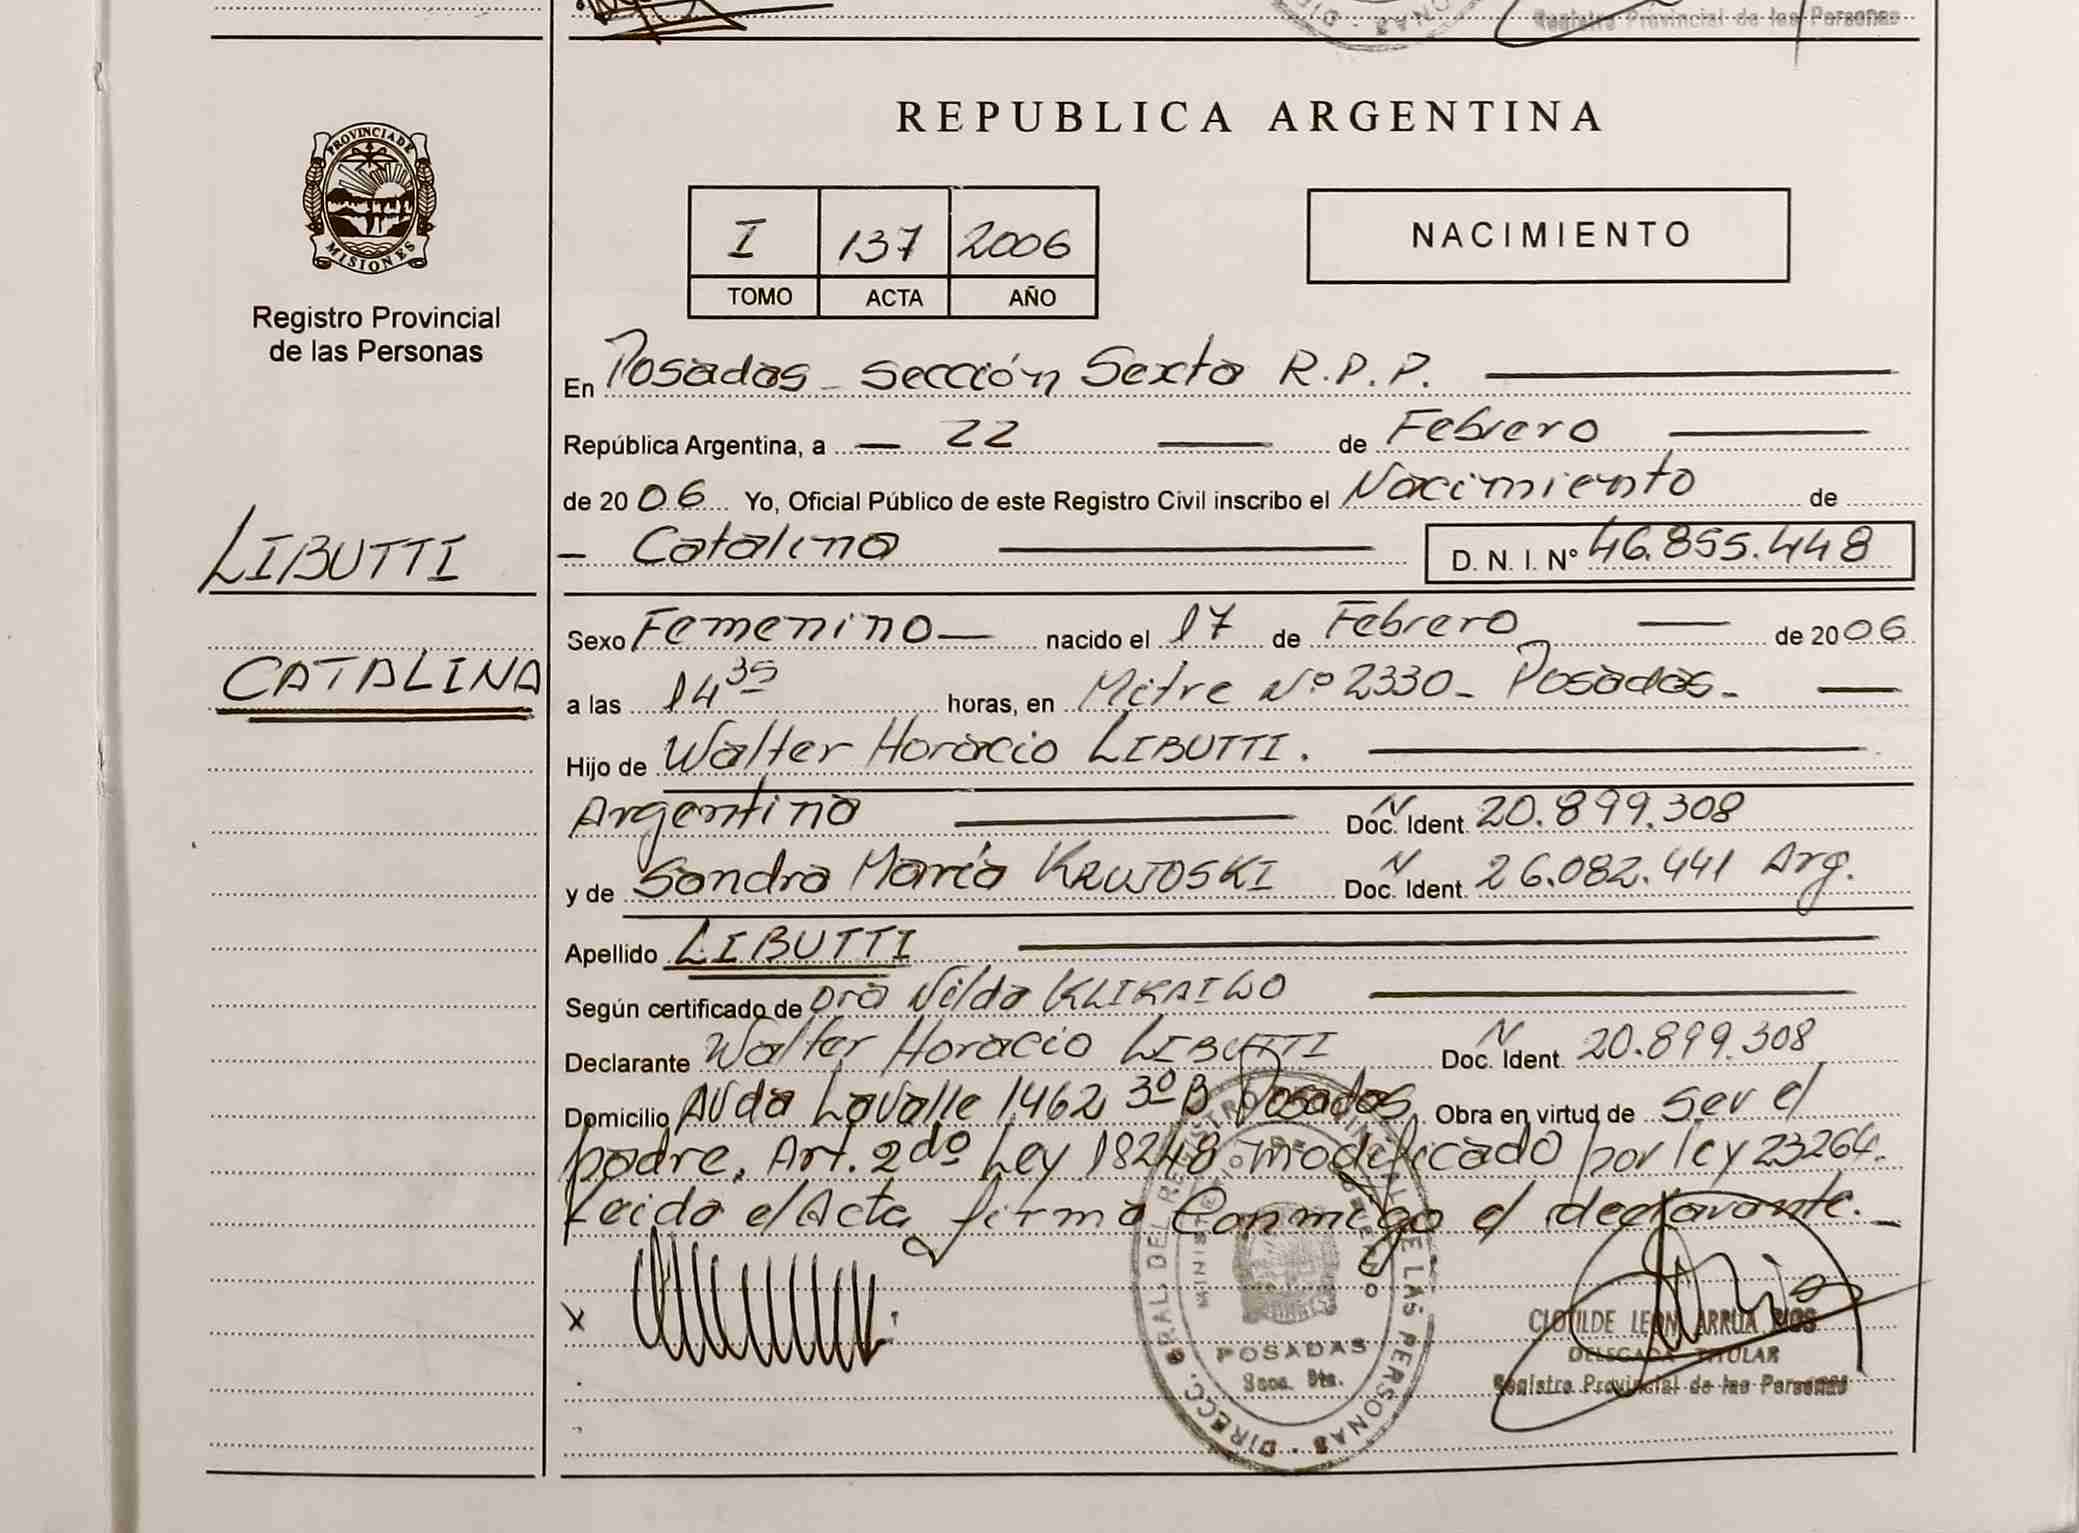 Registro Provincial de las Personas
PROVINCIA DE
MISIONES
Registro Provincial
de las Personas
LIBUTTI
CATALINA
REPUBLICA ARGENTINA
I 137 2006
TOMO ACTA AÑO
NACIMIENTO
En Posadas - Sección Sexta R.P.P.
República Argentina, a — 22 — de Febrero
de 2006 Yo, Oficial Público de este Registro Civil inscribo el Nacimiento de
— Catalina — D. N. I. Nº 46.855.448
Sexo Femenino — nacido el 17 de Febrero — de 2006
a las 14 35 horas, en Mitre Nº 2330 - Posadas -
Hijo de Walter Horacio LIBUTTI.
Argentina — Doc. Ident. N 20.899.308
y de Sandra María KRUJOSKI Doc. Ident. N 26.082.441 Arg.
Apellido LIBUTTI
Según certificado de Dra Nilda
Declarante Walter Horacio LIBUTTI Doc. Ident. N 20.899.308
Domicilio AVda Lavalle 1462 3º B Posadas Obra en virtud de ser el
padre. Art. 2do Ley 18248 modificado por ley 23264.
Leida el Acta firma Conmigo el declarante.
X
DIRECC. GRAL. DEL REGISTRO PROVINCIAL DE LAS PERSONAS
MINISTERIO DE GOBIERNO
POSADAS
Secc. 6ta.
CLOTILDE LEON ARRUA RIOS
DELEGADA TITULAR
Registro Provincial de las Personas